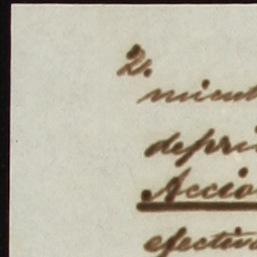 2.
mient
depri
Accio
efectiv